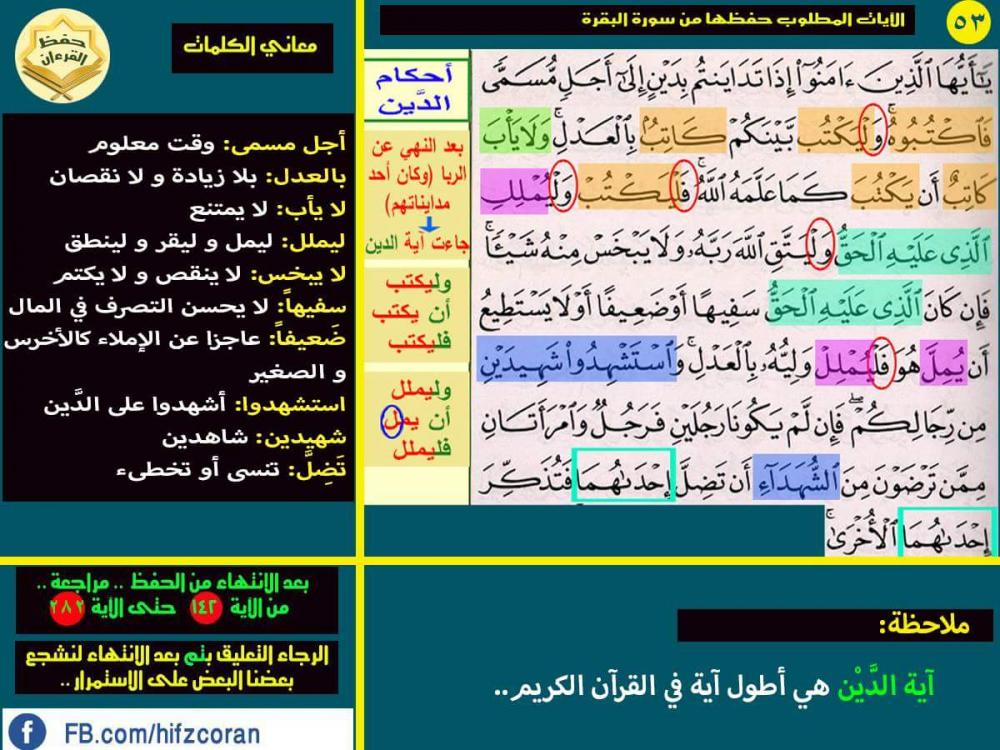 ٥٣
الايات المطلوب حفظها من سورة البقرة
يَٰٓأَيُّهَا ٱلَّذِينَ ءَامَنُوٓا۟ إِذَا تَدَايَنتُم بِدَيْنٍ إِلَىٰٓ أَجَلٍ مُّسَمًّى
فَٱكْتُبُوهُ ۚ وَلْيَكْتُب بَّيْنَكُمْ كَاتِبٌۢ بِٱلْعَدْلِ ۚ وَلَا يَأْبَ
كَاتِبٌ أَن يَكْتُبَ كَمَا عَلَّمَهُ ٱللَّهُ ۚ فَلْيَكْتُبْ وَلْيُمْلِلِ
ٱلَّذِى عَلَيْهِ ٱلْحَقُّ وَلْيَتَّقِ ٱللَّهَ رَبَّهُۥ وَلَا يَبْخَسْ مِنْهُ شَيْـًٔا ۚ
فَإِن كَانَ ٱلَّذِى عَلَيْهِ ٱلْحَقُّ سَفِيهًا أَوْ ضَعِيفًا أَوْ لَا يَسْتَطِيعُ
أَن يُمِلَّ هُوَ فَلْيُمْلِلْ وَلِيُّهُۥ بِٱلْعَدْلِ ۚ وَٱسْتَشْهِدُوا۟ شَهِيدَيْنِ
مِن رِّجَالِكُمْ ۖ فَإِن لَّمْ يَكُونَا رَجُلَيْنِ فَرَجُلٌ وَٱمْرَأَتَانِ
مِمَّن تَرْضَوْنَ مِنَ ٱلشُّهَدَآءِ أَن تَضِلَّ إِحْدَىٰهُمَا فَتُذَكِّرَ
إِحْدَىٰهُمَا ٱلْأُخْرَىٰ ۚ
أحكام
الدَّين
بعد النهي عن
الربا (وكان أحد
مدايناتهم)
جاءت آية الدين
وليكتب
أن يكتب
فليكتب
وليملل
أن يمل
فليملل
حفظ
القرءان
معاني الكلمات
أجل مسمى: وقت معلوم
بالعدل: بلا زيادة و لا نقصان
لا يأب: لا يمتنع
ليملل: ليمل و ليقر و لينطق
لا يبخس: لا ينقص و لا يكتم
سفيهاً: لا يحسن التصرف في المال
ضَعيفاً: عاجزا عن الإملاء كالأخرس
و الصغير
استشهدوا: أشهدوا على الدَّين
شهيدين: شاهدين
تَضِلَّ: تنسى أو تخطىء
ملاحظة:
آية الدَّيْن هي أطول آية في القرآن الكريم..
بعد الانتهاء من الحفظ .. مراجعة ..
من الاية ١٤٢ حتى الاية ٢٨٢
الرجاء التعليق بتم بعد الانتهاء لنشجع
بعضنا البعض على الاستمرار ..
f FB.com/hifzcoran